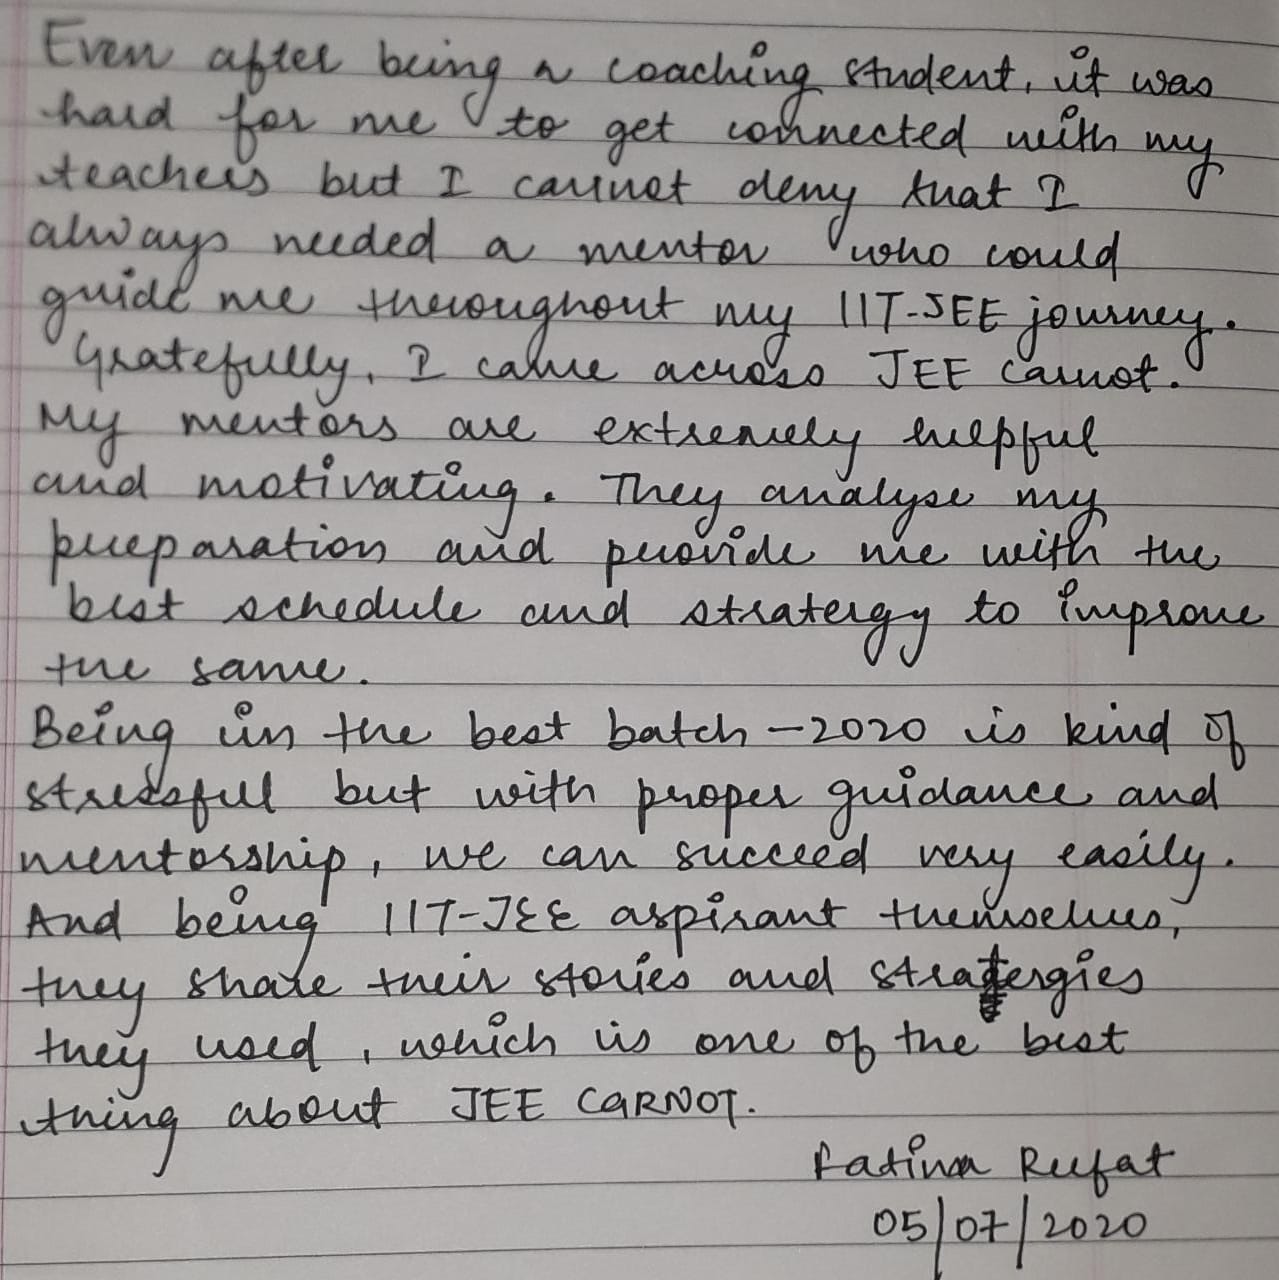 Even after being a coaching student, it was
hard for me to get connected with my
teachers but I cannot deny that I
always needed a mentor who could
guide me throughout my IIT-JEE journey.
Gratefully, I came across JEE Carnot.
My mentors are extremely helpful
and motivating. They analyse my
preparation and provide me with the
best schedule and stratergy to improve
the same.
Being in the best batch-2020 is kind of
stressful but with proper guidance and
mentorship, we can succeed very easily.
And being IIT-JEE aspirant themselves,
they share their stories and stratergies
they used, which is one of the best
thing about JEE CARNOT.
Fatima Reefat
05/07/2020